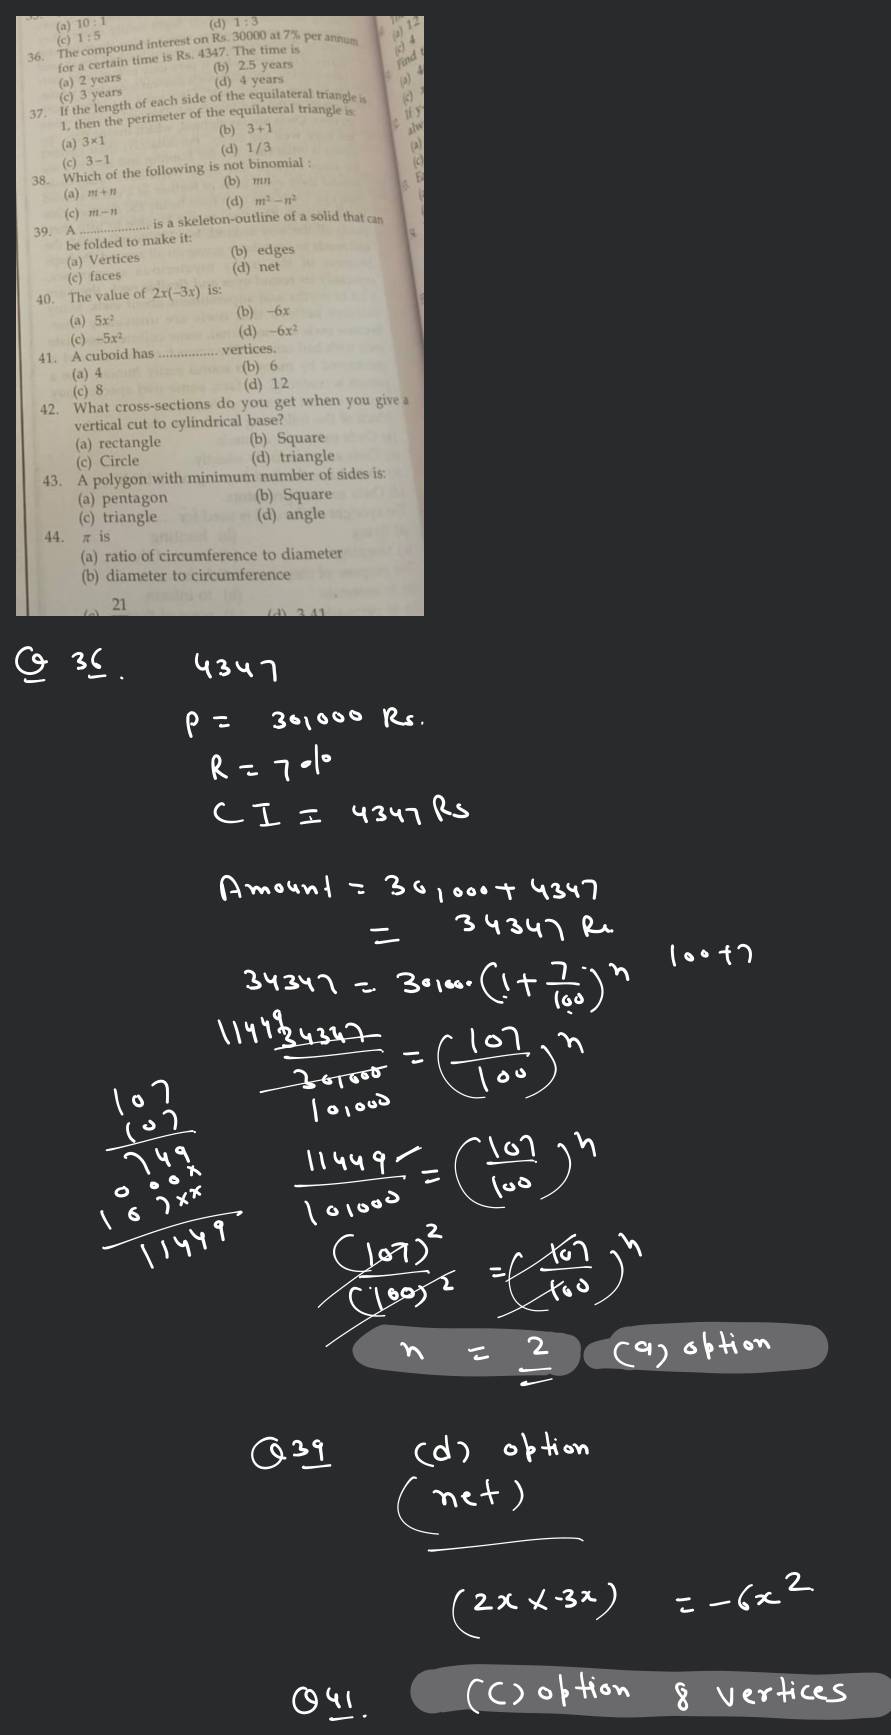 (a) 10 : 1 (d) 1 : 3
(c) 1 : 5
36. The compound interest on Rs. 30000 at 7% per annum
for a certain time is Rs. 4347. The time is
(a) 2 years (b) 2.5 years
(c) 3 years (d) 4 years
37. If the length of each side of the equilateral triangle is
1, then the perimeter of the equilateral triangle is:
(a) 3×1 (b) 3+1
(c) 3−1 (d) 1/3
38. Which of the following is not binomial :
(a) m+n (b) mn
(c) m−n (d) m² − n²
39. A .................... is a skeleton-outline of a solid that can
be folded to make it:
(a) Vertices (b) edges
(c) faces (d) net
40. The value of 2x(−3x) is:
(a) 5x² (b) −6x
(c) −5x² (d) −6x²
41. A cuboid has ................ vertices.
(a) 4 (b) 6
(c) 8 (d) 12
42. What cross-sections do you get when you give a
vertical cut to cylindrical base?
(a) rectangle (b) Square
(c) Circle (d) triangle
43. A polygon with minimum number of sides is:
(a) pentagon (b) Square
(c) triangle (d) angle
44. π is
(a) ratio of circumference to diameter
(b) diameter to circumference
21
(d) 3.41
(a) 12
(c) 4
Find
Q 36. 4347
P = 30,000 Rs.
R = 7%
CI = 4347 Rs
Amount = 30,000 + 4347
= 34347 Rs
34347 = 30,000 (1 + 7/100)^n 100+7
11449 34347/30,000 10,000 = (107/100)^n
107
107
749
000x
107xx
11449
11449/10,000 = (107/100)^n
(107)²/(100)² = (107/100)^n
n = 2 (a) option
Q39 (d) option
(net)
(2x × -3x) = -6x²
Q41. (C) option 8 vertices